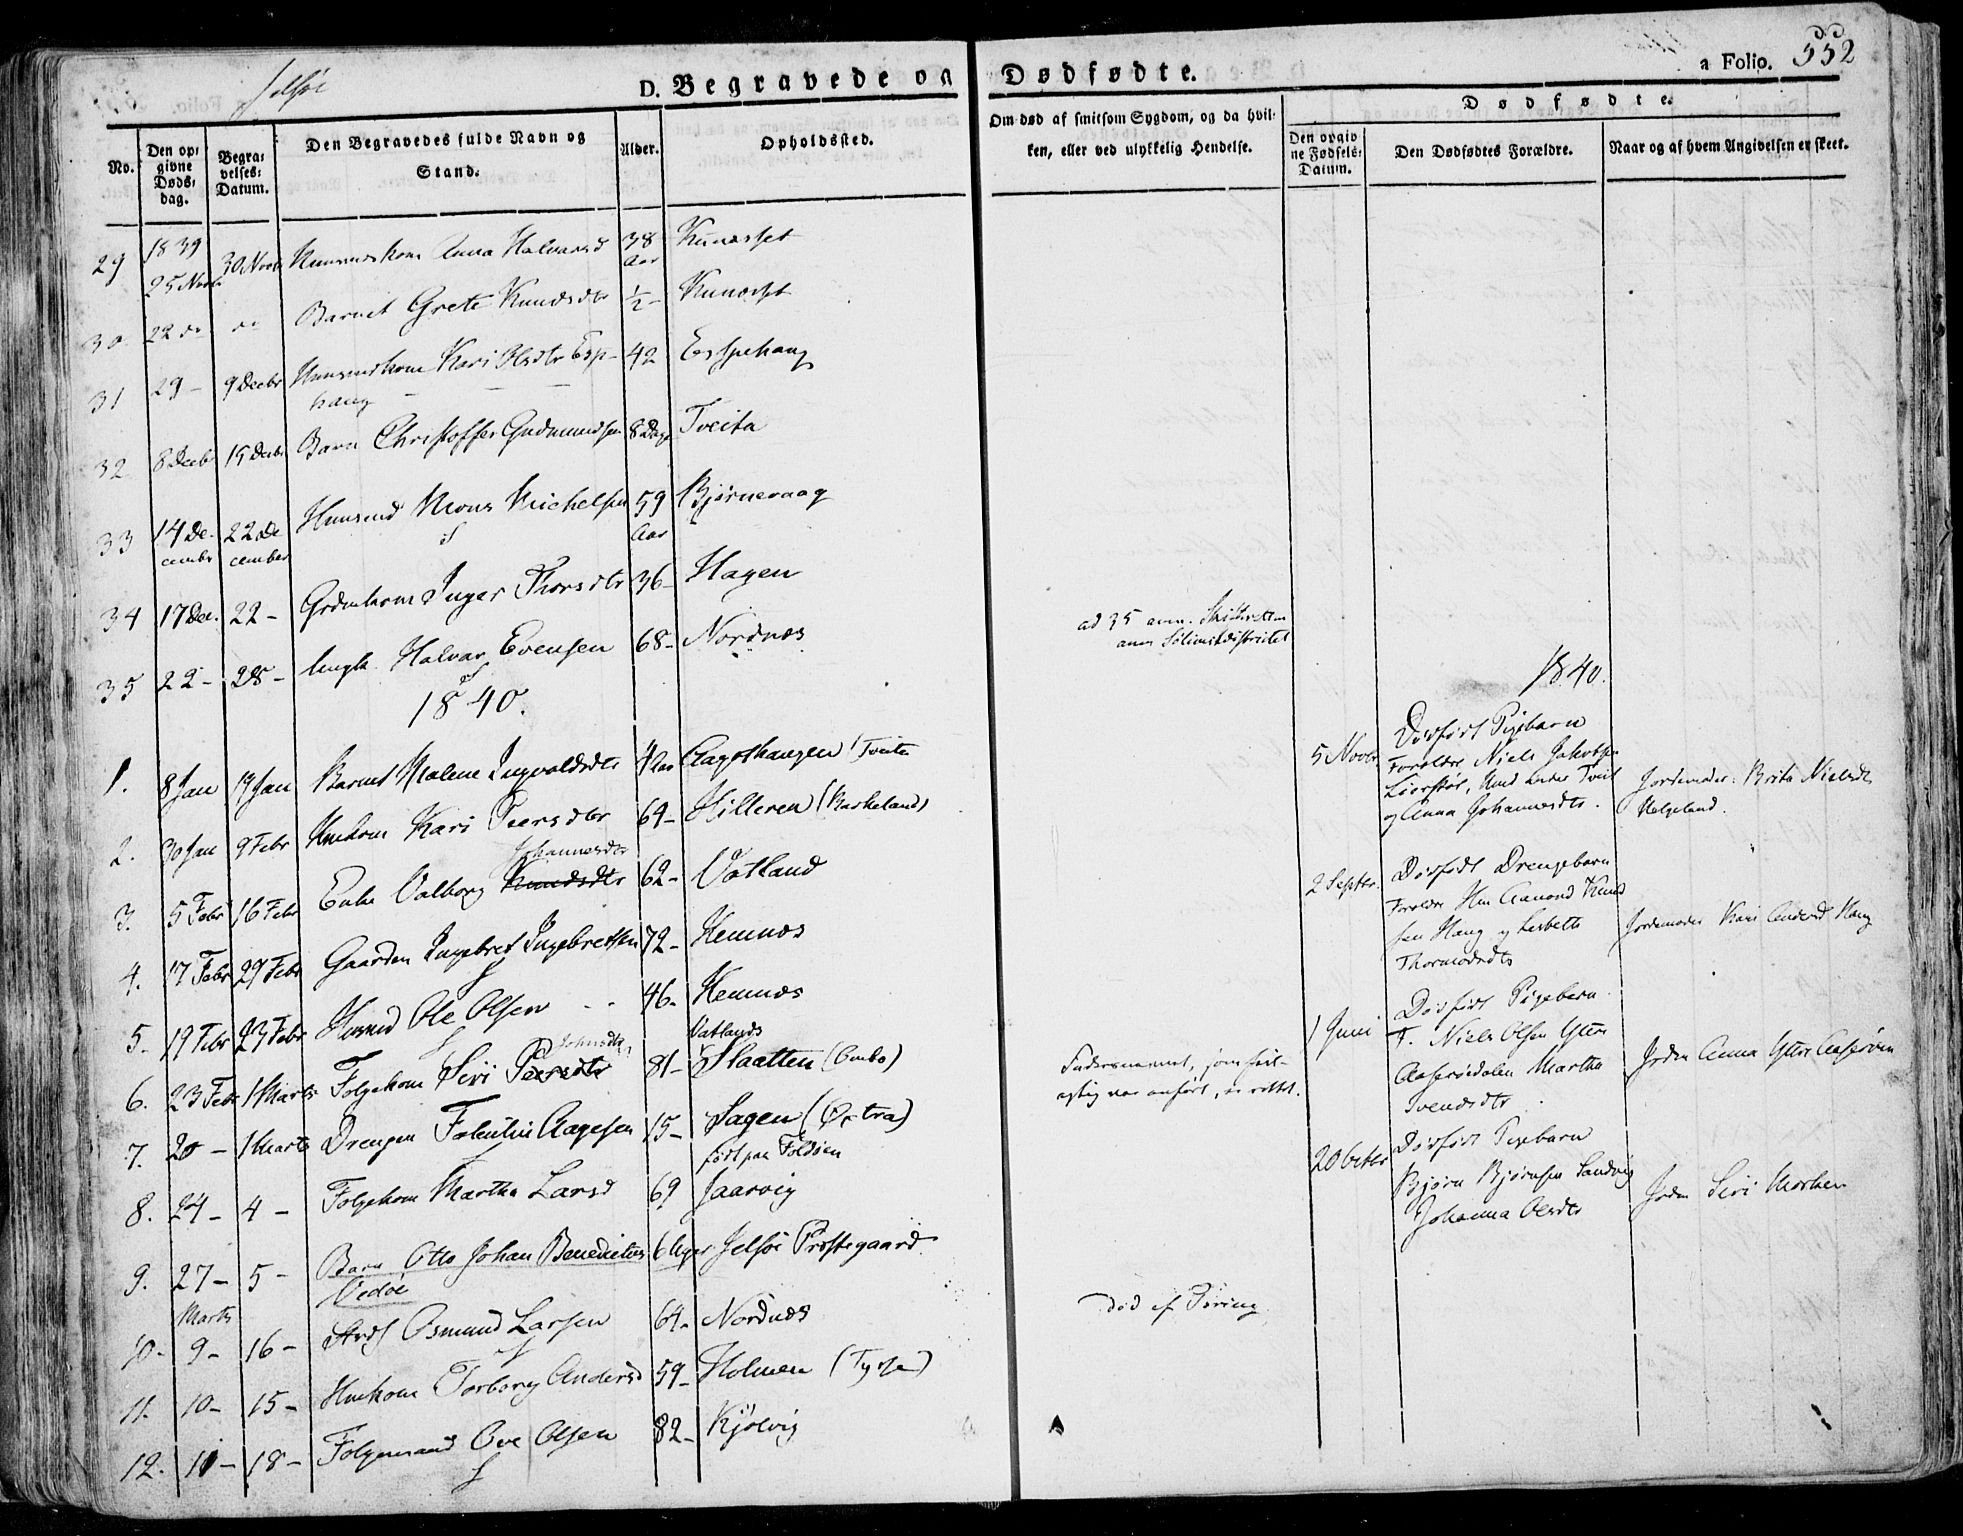 Jelsøe
D. Begravede og Dødfødte.
a Folio. 552
No.
Den opgivne Dødsdag.
Begravelses-Datum.
Den Begravedes fulde Navn og Stand.
Alder.
Opholdssted.
Om død af smitsom Sygdom, og da hvilken, eller ved ulykkelig Hendelse.
Dødfødte.
Den opgivne Fødsels-Datum.
Den Dødfødtes Forældre.
Naar og af hvem Angivelsen er skeet.
1839
29 25 Novb 30 Novb Anna Halvarsd 38 Aar
30 22 do do Barnet Grete Knudsdtr ½ -
31 29 - 9 Decbr Kari Olsdtr Esp- 42 Espehaug
haug
32 8 Decb 15 Decbr Barn Christoffer Gudmundsen 8 Dage Tveita
33 14 De- 22 De Huusmd Mons Michelsen 59 Bjørnevaag
cember cember Aar
34 17 Dec. 22 - Inger Thorsdtr 36 - Hagen
35 22 - 28 - Ungk. Halvar Evensen 68 - Nordnæs
1840.
1. 8 Jan 19 Jan Barnet Malene Ingvaldsdtr Aagothaugen (Tveite
2. 30 Jan 9 Febr Kari Peersdtr 64 - Hilleren (Barkeland)
Johannesdtr
3. 5 Febr 16 Febr Enke Valborg Knudsdtr 62 - Vatland
4. 17 Febr 29 Febr Gaardm Ingebret Ingebretsen 72 - Hemnæs
5. 19 Febr 23 Febr Husmd Ole Olsen 46 - Hemnæs
Johnsdtr Vatlands
6. 23 Febr 1 Marts Folgekone Siri Peersdtr 81 - Slaatten (Ombo)
7. 20 - 1 Marts Drengen Aagesen 15 - Hagen (Øxtra)
født paa Foldøen
8. 24 - 4 - Folgekone Martha Larsd 69 Jaarvig
9. 27 - 5 - Barn Otto Johan Benedictus 6 Uger Jelsøe Præstegaard
Vedøe
Marts
10 - 9 - 16 - Osmund Larsen 64 - Nordnæs
11. 10 - 15 - Torborg Andersd 59 - Holmen
12. 11 - 18 - Folgemand Ove Olsen 82 - Kjølvig
ad 35 anm.
Fadersnavnet, som feil-
agtig var anført, er rettet.
død af Tæring
1840.
5 Novbr Dødfødt Pigebarn
Forældre Niels Jakobsen
Tveit
og Anna Johannesdtr.
Jordemoder: Brita Nielsdtr
Helgeland.
2 Septbr. Dødfødt Drengebarn
Forældre Hm Aamond Knud
sen Haug og Lisbeth
Thormodsdtr
Jordemoder Kari Andersd Haug
1 Juni Dødfødt Pigebarn
F. Niels Olsen Ytre
Martha
Svendsdtr
Jordm Anna Ytre
20 Octbr Dødfødt Pigebarn
Bjørn Bjørnsen Sandvig
Johanna Olsdtr
Jordm Siri Marken